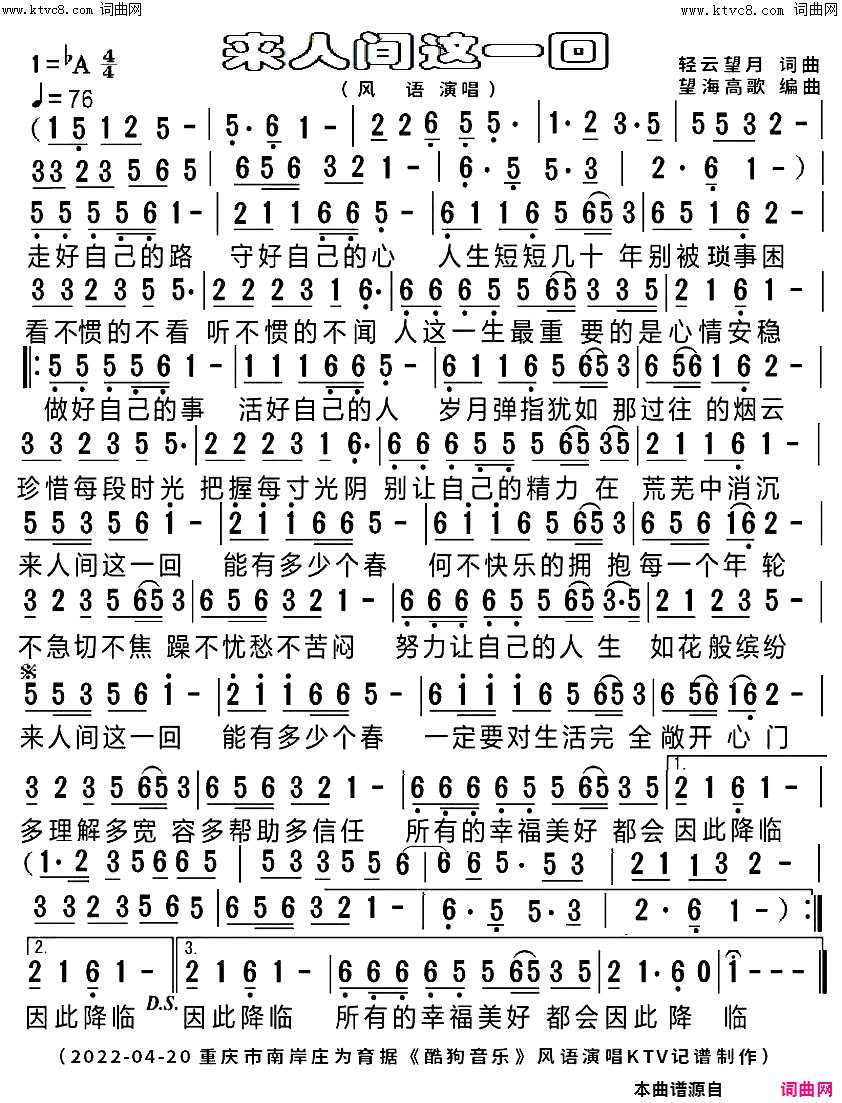 www.ktvc8.com 词曲网
www.ktvc8.com 词曲网
来人间这一回
1=♭A 4/4
轻云望月 词曲
♩=76
(风 语 演唱)
望海高歌 编曲
(1 5 1 2 5 - | 5· 6 1 - | 2 2 6 5 5· | 1· 2 3· 5 | 5 5 3 2 - |
3 3 2 3 5 6 5 | 6 5 6 3 2 1 - | 6· 5 5· 3 | 2· 6 1 - ) |
5 5 5 5 6 1 - | 2 1 1 6 6 5 - | 6 1 1 6 5 6 5 3 | 6 5 1 6 2 - |
走好自己的路 守好自己的心 人生短短几十 年别被琐事困
3 3 2 3 5 5· | 2 2 2 3 1 6· | 6 6 6 5 5 6 5 3 3 5 | 2 2 6 1 - |
看不惯的不看 听不惯的不闻 人这一生最重 要的是心情安稳
‖: 5 5 5 5 6 1 - | 1 1 1 6 6 5 - | 6 1 1 6 5 6 5 3 | 6 5 6 1 6 2 - |
做好自己的事 活好自己的人 岁月弹指犹如 那过往 的烟云
3 3 2 3 5 5· | 2 2 2 3 1 6· | 6 6 6 5 5 6 5 3 5 | 2 1 1 6 1 - |
珍惜每段时光 把握每寸光阴 别让自己的精力 在 荒芜中消沉
5 5 3 5 6 i - | 2 i i 6 6 5 - | 6 i i 6 5 6 5 3 | 6 5 6 i 6 2 |
来人间这一回 能有多少个春 何不快乐的拥 抱每一个年 轮
3 2 3 5 6 5 3 | 6 5 6 3 2 1 - | 6 6 6 6 5 5 6 5 3·5 | 2 1 2 3 5 - |
不急切不焦 躁不忧愁不苦闷 努力让自己的人 生 如花般缤纷
5 5 3 5 6 i - | 2 i i 6 6 5 - | 6 i i i 6 5 6 5 3 | 6 5 6 i 6 2 - |
来人间这一回 能有多少个春 一定要对生活完 全敞开 心 门
3 2 3 5 6 5 3 | 6 5 6 3 2 1 - | 6 6 6 6 5 5 6 5 3 5 | 1. 2 1 6 1 - |
多理解多宽 容多帮助多信任 所有的幸福美好 都会因此降临
(1· 2 3 5 6 6 5 | 5 3 3 5 5 6 | 6 6 5 5 3 5 | 2 1 1 3 2 - |
3 3 2 3 5 6 5 | 6 5 6 3 2 1 - | 6· 5 5· 3 | 2· 6 1 - ) :‖
2. 2 1 6 1 - | 3. 2 1 6 1 - | 6 6 6 6 5 5 6 5 3 5 | 2 1· 6 0 | i - - - ‖
因此降临 D.S. 因此降临 所有的幸福美好 都会因此 降 临
(2022-04-20 重庆市南岸庄为育据《酷狗音乐》风语演唱KTV记谱制作)
本曲谱源自 词曲网